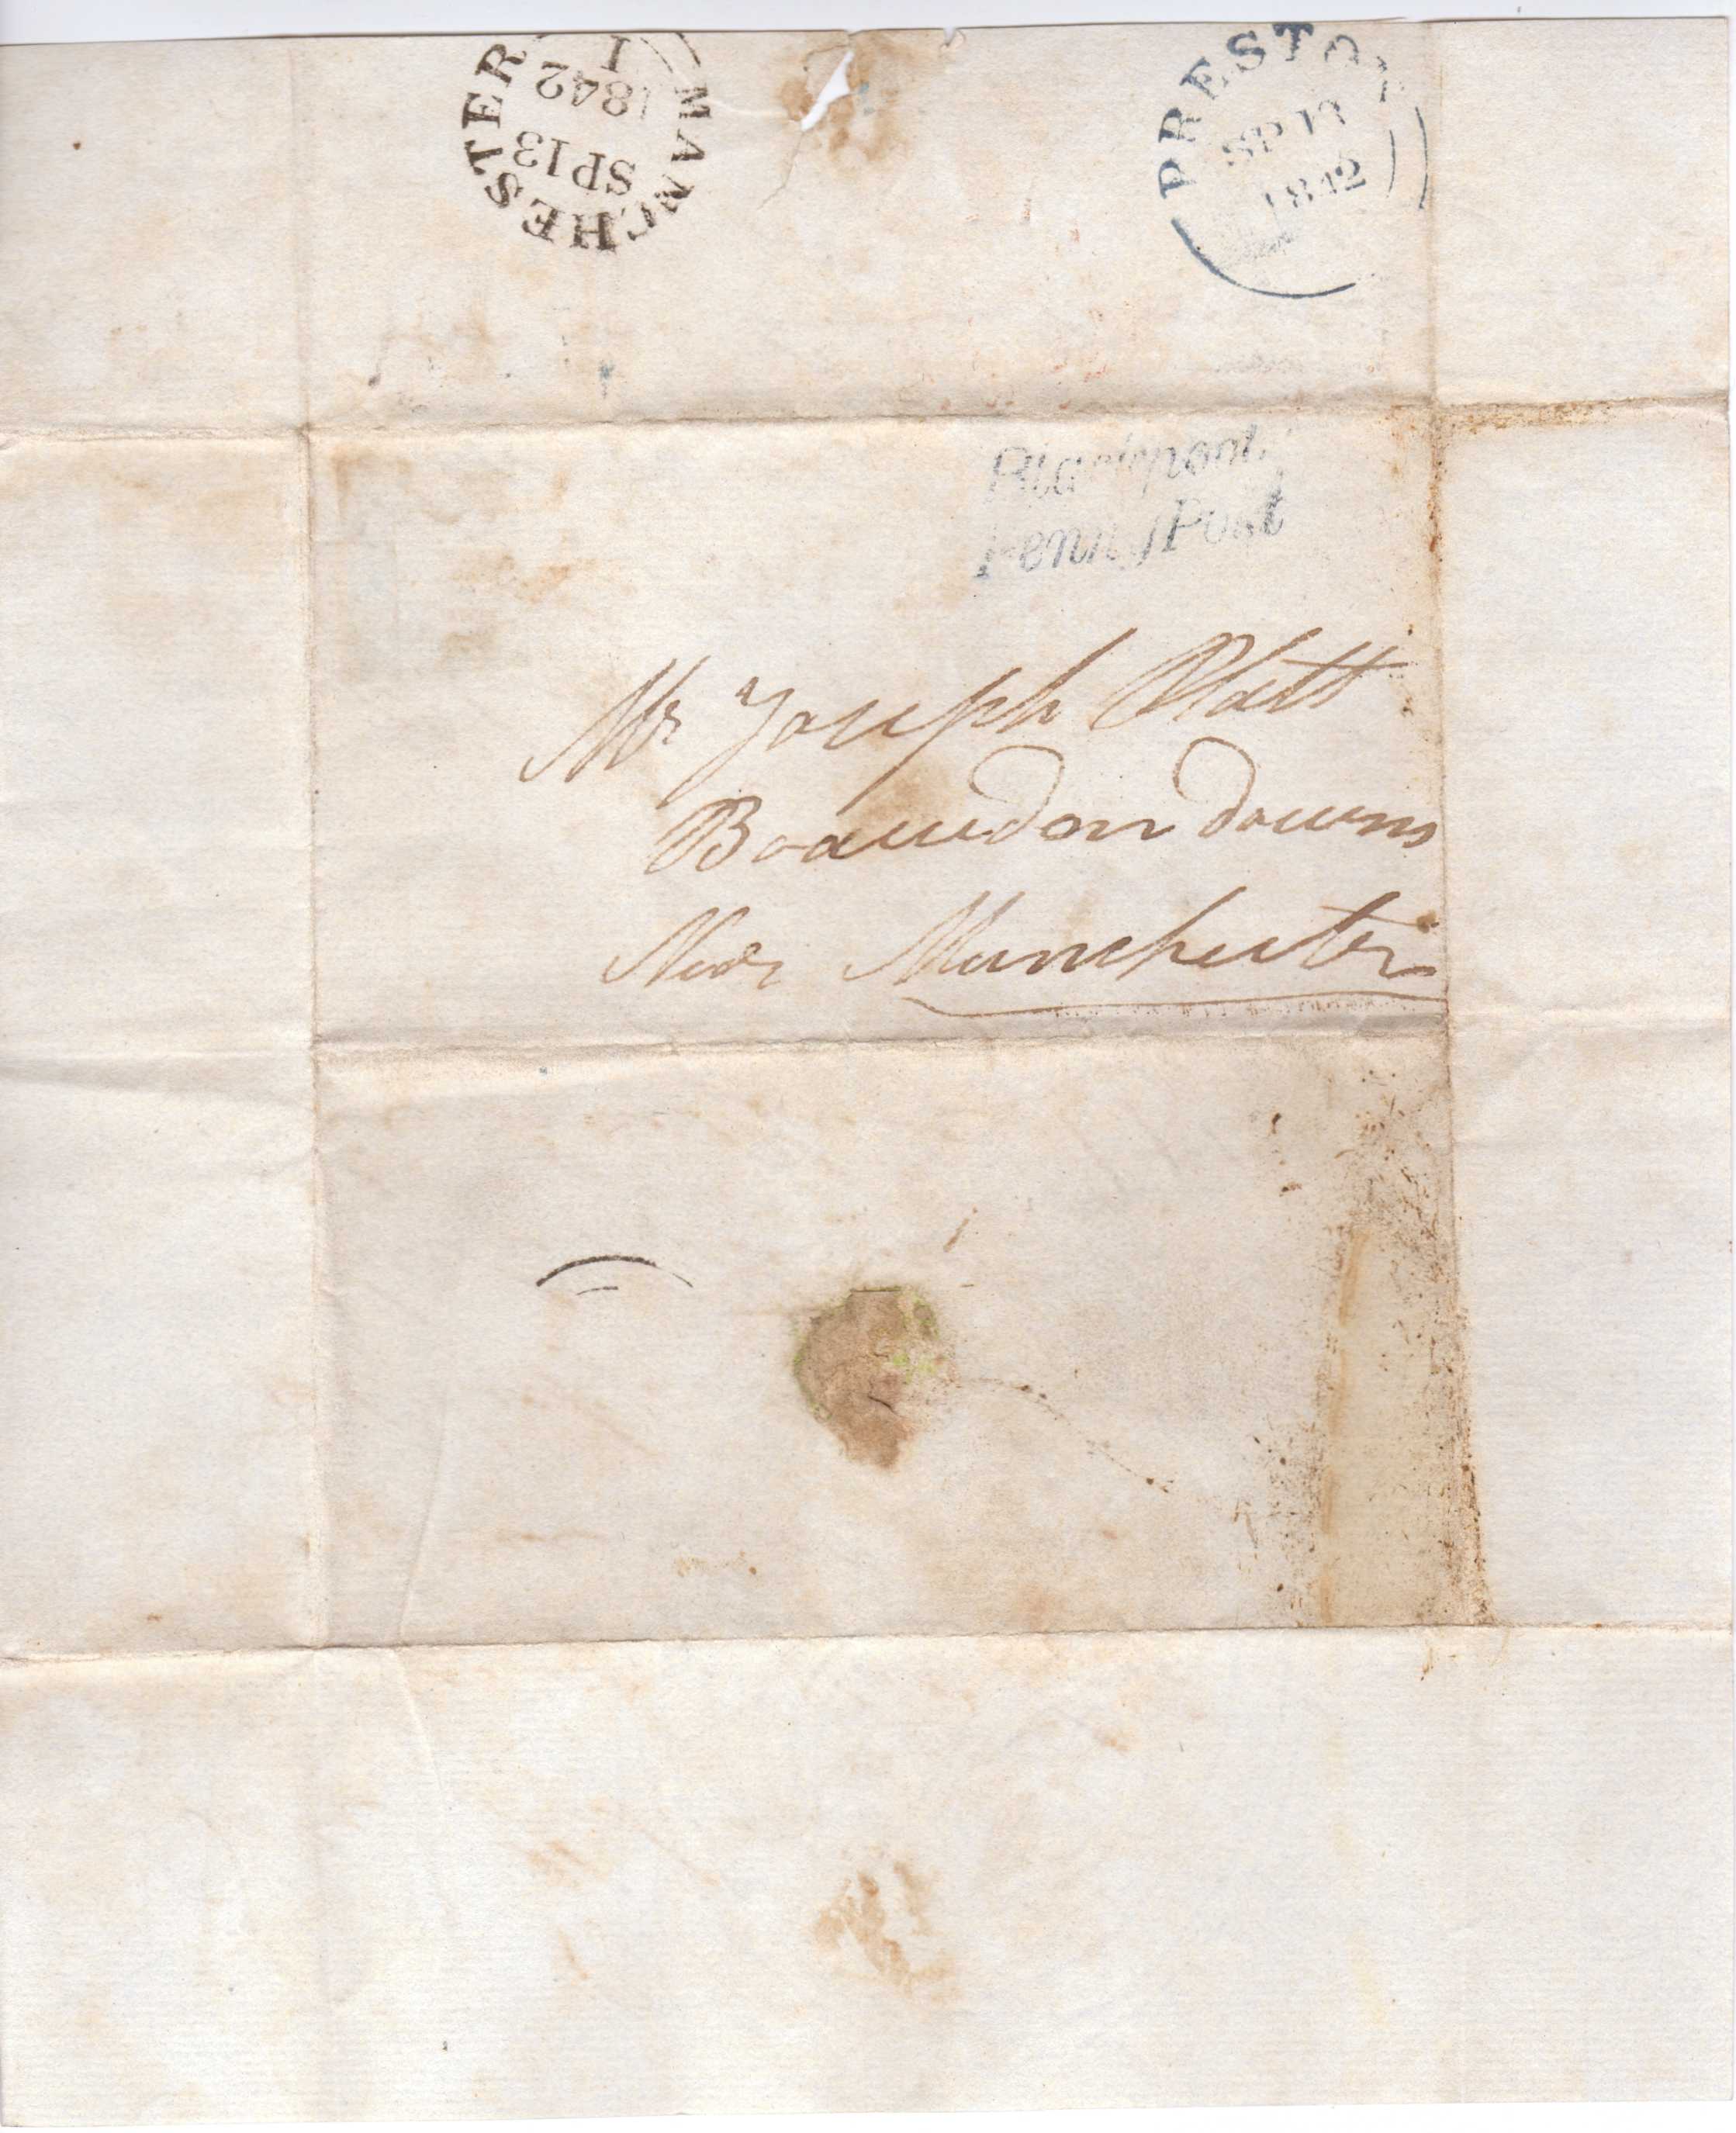 MANCHESTER
I
1842
SP 13
PRESTON
SP 13
1842
Blackpool
Penny Post
Mr Joseph Platt
Boawdon downs
Near Manchester